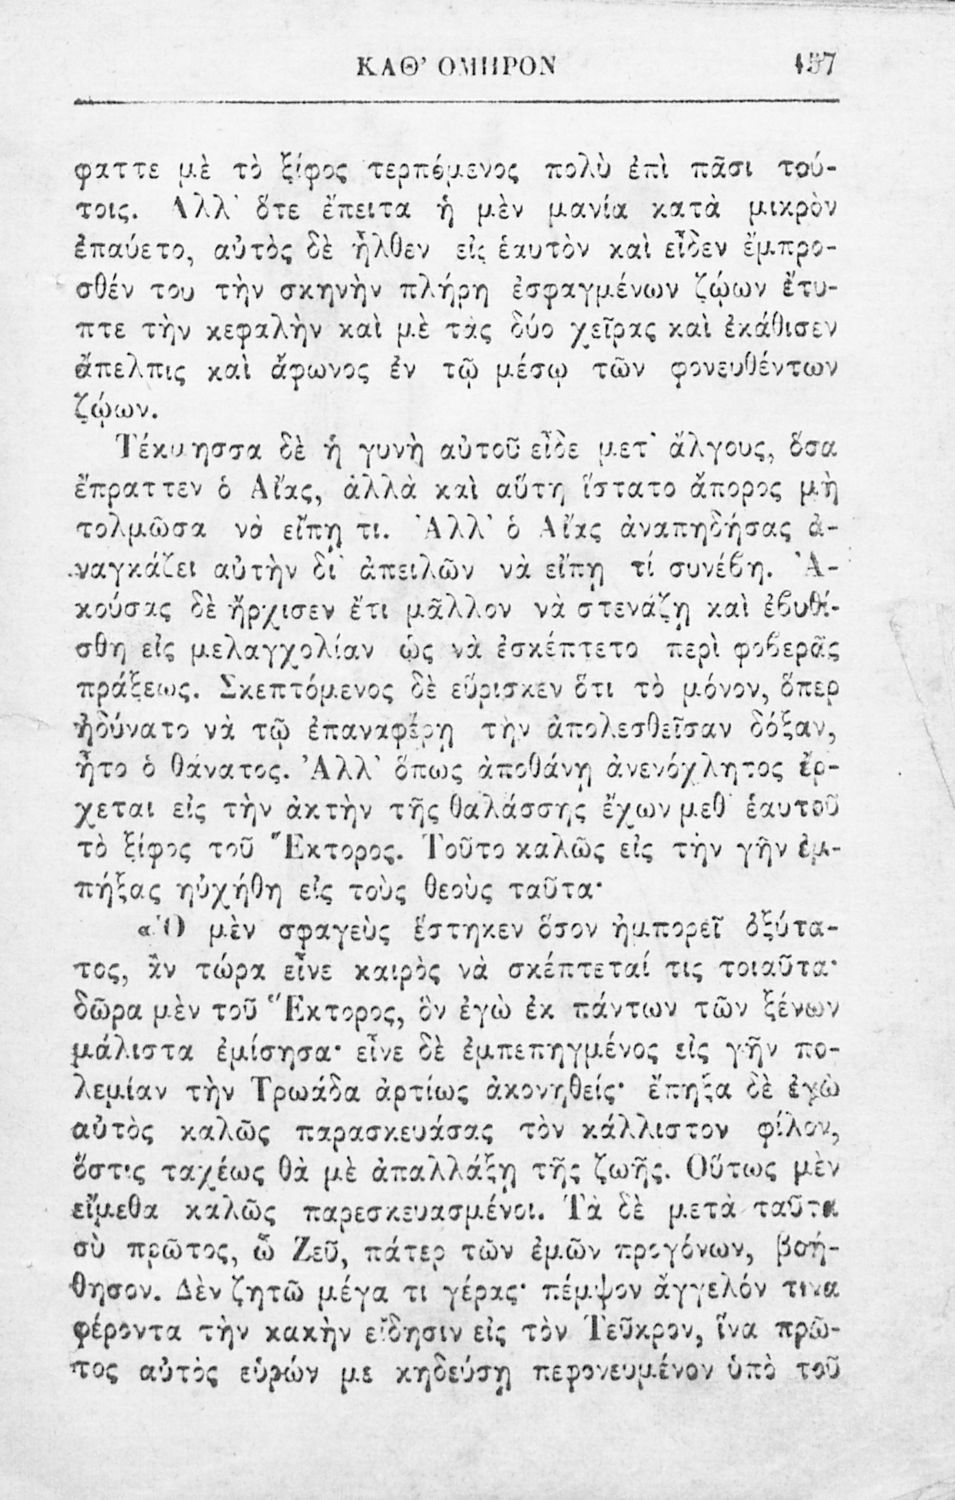 ΚΑΘ' ΟΜΗΡΟΝ 157
φαττε μὲ τὸ ξίφος τερπόμενος πολὺ ἐπὶ πᾶσι τού-
τοις. Ἀλλ' ὅτε ἔπειτα ἡ μὲν μανία κατὰ μικρὸν
ἐπαύετο, αὐτὸς δὲ ἦλθεν εἰς ἑαυτὸν καὶ εἶδεν ἔμπρο-
σθέν του τὴν σκηνὴν πλήρη ἐσφαγμένων ζῴων ἔτυ-
πτε τὴν κεφαλὴν καὶ μὲ τὰς δύο χεῖρας καὶ ἐκάθισεν
ἄπελπις καὶ ἄφωνος ἐν τῷ μέσῳ τῶν φονευθέντων
ζῴων.
Τέκμησσα δὲ ἡ γυνὴ αὐτοῦ εἶδε μετ' ἄλγους, ὅσα
ἔπραττεν ὁ Αἴας, ἀλλὰ καὶ αὕτη ἵστατο ἄπορος μὴ
τολμῶσα νὰ εἴπῃ τι. Ἀλλ' ὁ Αἴας ἀναπηδήσας ἀ-
ναγκάζει αὐτὴν δι' ἀπειλῶν νὰ εἴπῃ τί συνέβη. Ἀ-
κούσας δὲ ἤρχισεν ἔτι μᾶλλον νὰ στενάζῃ καὶ ἐβυθί-
σθη εἰς μελαγχολίαν ὡς νὰ ἐσκέπτετο περὶ φοβερᾶς
πράξεως. Σκεπτόμενος δὲ εὕρισκεν ὅτι τὸ μόνον, ὅπερ
ἠδύνατο νὰ τῷ ἐπαναφέρῃ τὴν ἀπολεσθεῖσαν δόξαν,
ἦτο ὁ θάνατος. Ἀλλ' ὅπως ἀποθάνῃ ἀνενόχλητος ἔρ-
χεται εἰς τὴν ἀκτὴν τῆς θαλάσσης ἔχων μεθ' ἑαυτοῦ
τὸ ξίφος τοῦ Ἕκτορος. Τοῦτο καλῶς εἰς τὴν γῆν ἐμ-
πήξας ηὐχήθη εἰς τοὺς θεοὺς ταῦτα·
«Ὁ μὲν σφαγεὺς ἕστηκεν ὅσον ἠμπορεῖ ὀξύτα-
τος, ἂν τώρα εἶνε καιρὸς νὰ σκέπτεταί τις τοιαῦτα·
δῶρα μὲν τοῦ Ἕκτορος, ὃν ἐγὼ ἐκ πάντων τῶν ξένων
μάλιστα ἐμίσησα· εἶνε δὲ ἐμπεπηγμένος εἰς γῆν πο-
λεμίαν τὴν Τρωάδα ἀρτίως ἀκονηθείς· ἔπηξα δὲ ἐγὼ
αὐτὸς καλῶς παρασκευάσας τὸν κάλλιστον φίλον,
ὅστις ταχέως θὰ μὲ ἀπαλλάξῃ τῆς ζωῆς. Οὕτως μὲν
εἴμεθα καλῶς παρεσκευασμένοι. Τὰ δὲ μετὰ ταῦτα
σὺ πρῶτος, ὦ Ζεῦ, πάτερ τῶν ἐμῶν προγόνων, βοή-
θησον. Δὲν ζητῶ μέγα τι γέρας· πέμψον ἄγγελόν τινα
φέροντα τὴν κακὴν εἴδησιν εἰς τὸν Τεῦκρον, ἵνα πρῶ-
τος αὐτὸς εὑρών με κηδεύσῃ πεφονευμένον ὑπὸ τοῦ